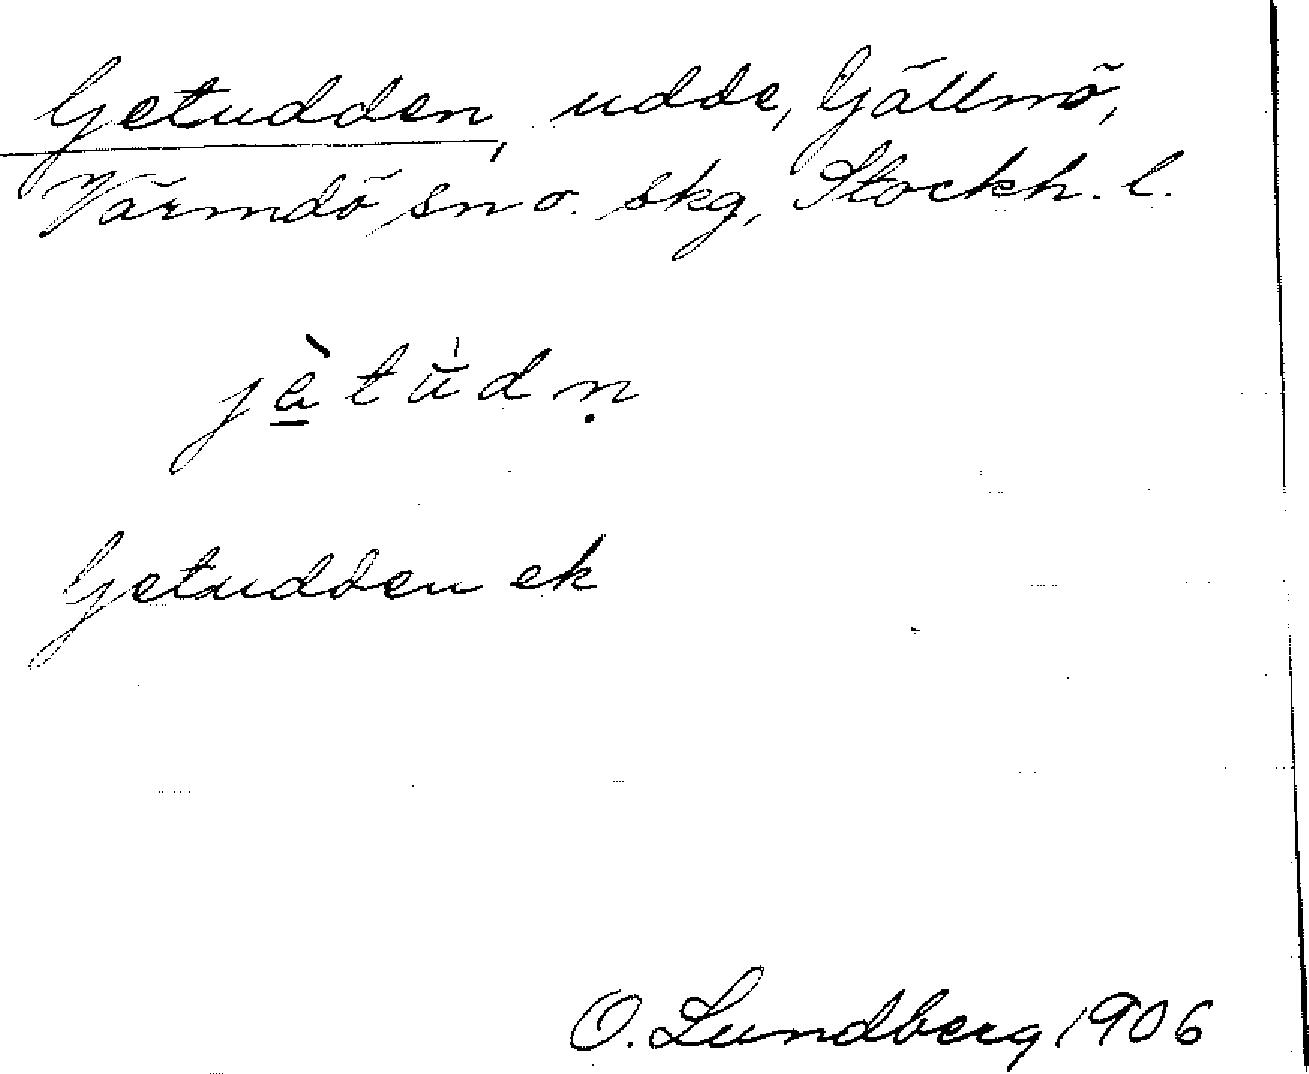 Getudden, udde, Gällnö,
Värmdö sn o. skg, Stockh. l.
jὰ̱tu̇̀dṇ
Getudden ek
O. Lundberg 1906